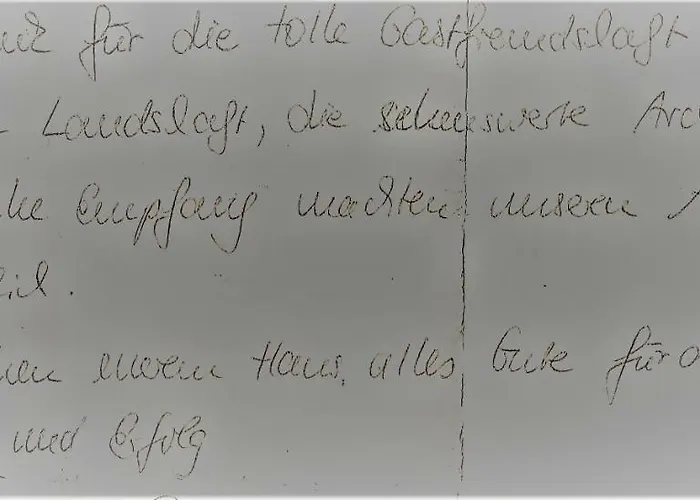 für die tolle Gastfreundschaft
Landschaft, die sehenswerte
Empfang machten unseren
eurem Haus, alles Gute für
und Erfolg